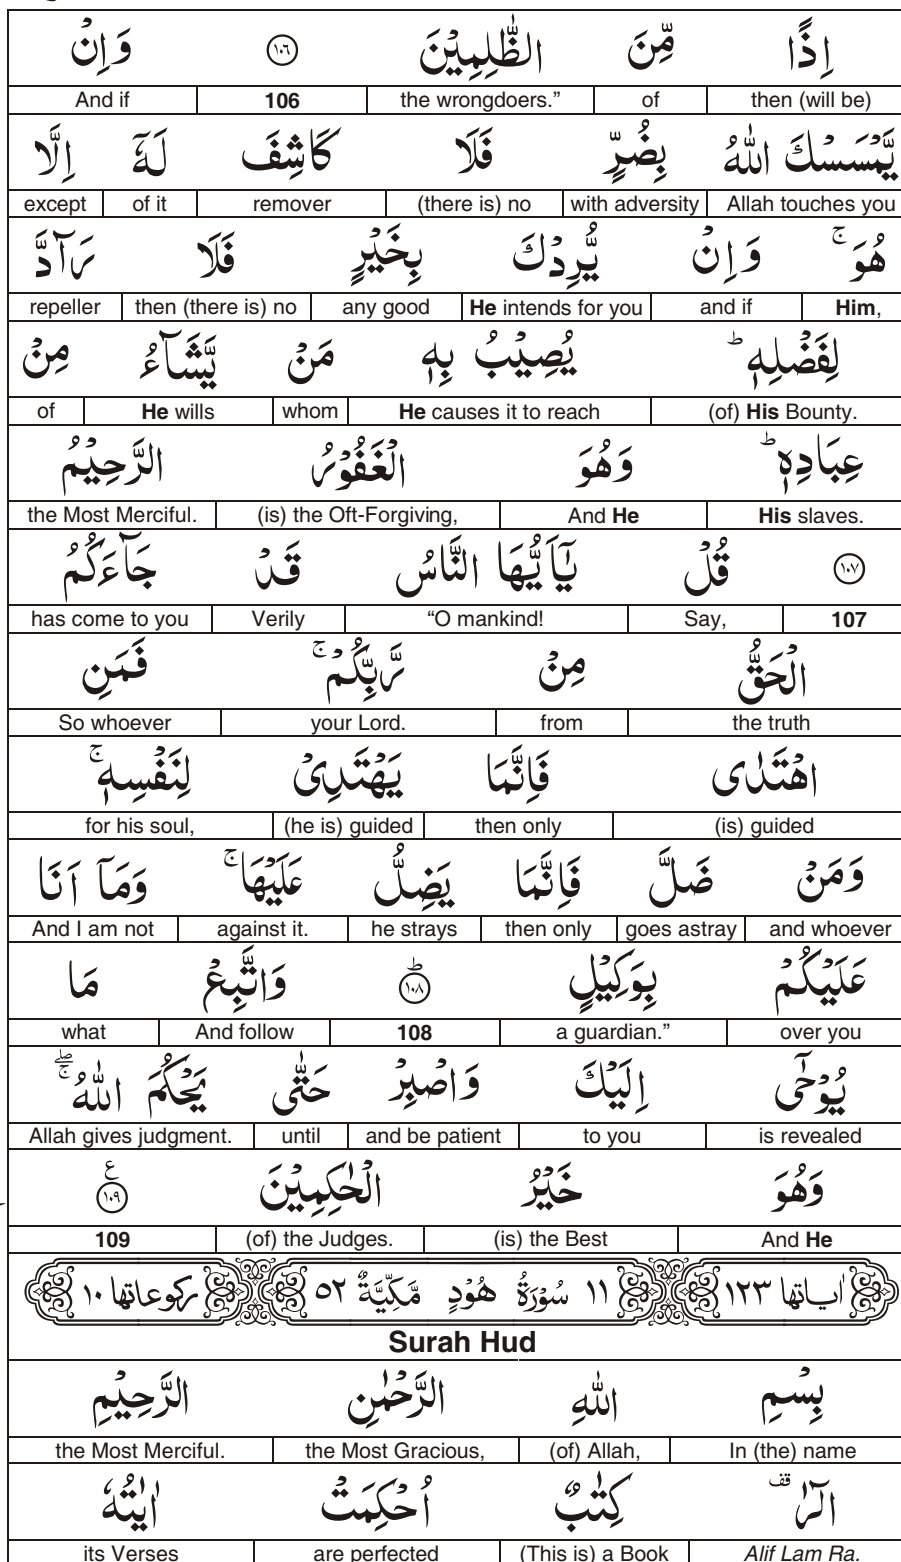 اِذًا مِّنَ الظّٰلِمِيْنَ ۝١٠٦ وَاِنْ
then (will be) of the wrongdoers.” 106 And if
يَّمْسَسْكَ اللّٰهُ بِضُرٍّ فَلَا كَاشِفَ لَهٗٓ اِلَّا
Allah touches you with adversity (there is) no remover of it except
هُوَ ۚ وَاِنْ يُّرِدْكَ بِخَيْرٍ فَلَا رَآدَّ
Him, and if He intends for you any good then (there is) no repeller
لِفَضْلِهٖ ؕ يُصِيْبُ بِهٖ مَنْ يَّشَآءُ مِنْ
(of) His Bounty. He causes it to reach whom He wills of
عِبَادِهٖ ؕ وَهُوَ الْغَفُوْرُ الرَّحِيْمُ
His slaves. And He (is) the Oft-Forgiving, the Most Merciful.
۝١٠٧ قُلْ يٰٓاَيُّهَا النَّاسُ قَدْ جَآءَكُمُ
107 Say, “O mankind! Verily has come to you
الْحَقُّ مِنْ رَّبِّكُمْ ۚ فَمَنِ
the truth from your Lord. So whoever
اهْتَدٰى فَاِنَّمَا يَهْتَدِيْ لِنَفْسِهٖ ۚ
(is) guided then only (he is) guided for his soul,
وَمَنْ ضَلَّ فَاِنَّمَا يَضِلُّ عَلَيْهَا ۚ وَمَآ اَنَا
and whoever goes astray then only he strays against it. And I am not
عَلَيْكُمْ بِوَكِيْلٍ ۝١٠٨ؕ وَاتَّبِعْ مَا
over you a guardian.” 108 And follow what
يُوْحٰٓى اِلَيْكَ وَاصْبِرْ حَتّٰى يَحْكُمَ اللّٰهُ ۖۚ
is revealed to you and be patient until Allah gives judgment.
وَهُوَ خَيْرُ الْحٰكِمِيْنَ ۝١٠٩ ع
And He (is) the Best (of) the Judges. 109
اٰیاتها ١٢٣ ١١ سُوْرَةُ هُوْدٍ مَّكِّيَّةٌ ٥٢ ركوعاتها ١٠
Surah Hud
بِسْمِ اللّٰهِ الرَّحْمٰنِ الرَّحِيْمِ
In (the) name (of) Allah, the Most Gracious, the Most Merciful.
الٓرٰ قف كِتٰبٌ اُحْكِمَتْ اٰيٰتُهٗ
Alif Lam Ra. (This is) a Book are perfected its Verses